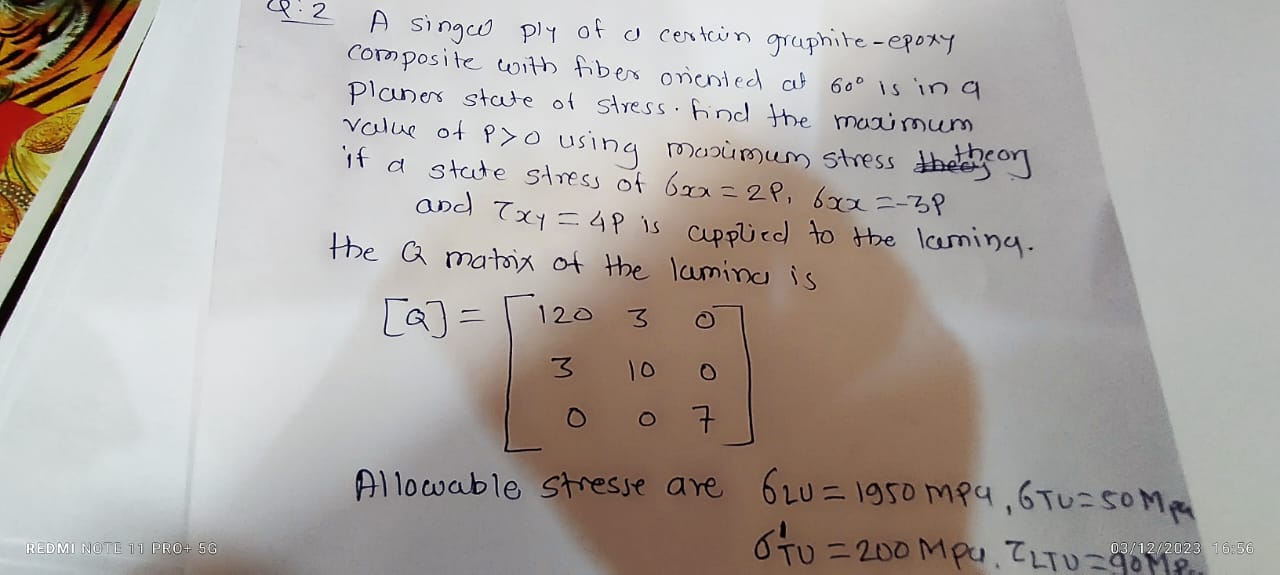 Q:2 A singel ply of a certain graphite-epoxy
composite with fiber oriented at 60° is in a
planer state of stress. find the maximum
value of P>0 using maximum stress theory
if a state stress of 6xx = 2P, 6xx = -3P
and τxy = 4P is applied to the lamina.
the Q matrix of the lamina is
[Q] =
120 3 0
3 10 0
0 0 7
Allowable stresse are 6LU = 1950 mpa, 6TU = 50 Mpa
6'TU = 200 Mpa. τLTU = 90 MP
REDMI NOTE 11 PRO+ 5G
03/12/2023 16:56